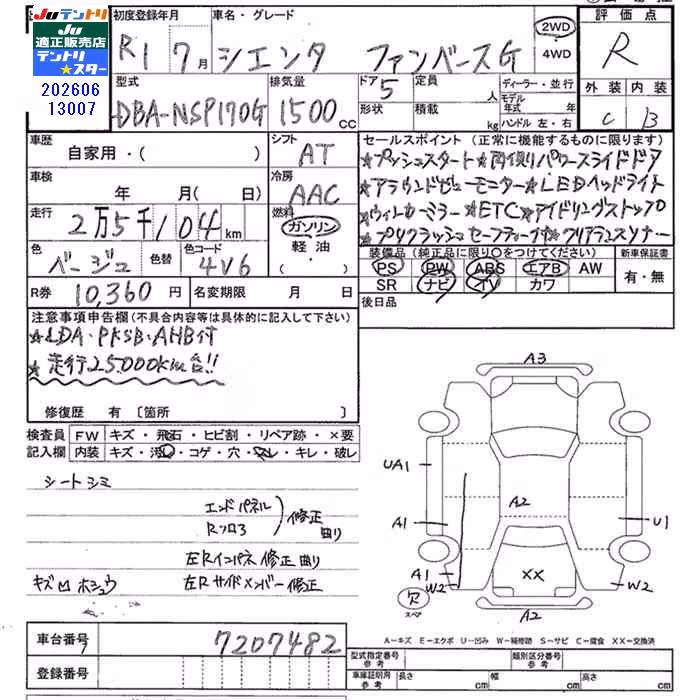 Juテントリ
JU適正販売店
テントリ
★スター
202606
13007
初度登録年月
R1 7月
車名・グレード
シエンタ ファンベースG
2WD
4WD
評価点
R
外装 内装
C B
型式
DBA-NSP170G
排気量
1500 cc
ドア 5
定員 人
形状
積載 kg
ディーラー・並行
モデル年式 年
ハンドル 左・右
車歴
自家用・( )
シフト
AT
車検
年 月(日)
冷房
AAC
走行
2万5千104 km
燃料
ガソリン
軽油
・( )
色
ベージュ
色替
色コード
4V6
R券 10,360 円
名変期限 月 日
セールスポイント(正常に機能するものに限ります)
★プッシュスタート★両側パワースライドドア
★アラウンドビューモニター★LEDヘッドライト
★ウィンカーミラー★ETC★アイドリングストップ
★プリクラッシュセーフティー付★クリアランスソナー
装備品(純正品に限り○をつけてください)
PS PW ABS エアB AW
SR ナビ TV カワ
新車保証書
有・無
後日品
注意事項申告欄(不具合内容等は具体的に記入して下さい)
★LDA・PKSB・AHB付
★走行25,000km台!!
修復歴 有 〔箇所 〕
検査員記入欄
FW キズ・飛石・ヒビ割・リペア跡・×要
内装 キズ・汚れ・コゲ・穴・スレ・キレ・破レ
シートシミ
エンドパネル
Rフロア
修正 曲り
左Rインパネ 修正 曲り
キズ凹ホシュウ
左Rサイドメンバー 修正
A3
UA1
A2
A1
U1
A1
W2
XX
W2
欠
スペア
A2
A-キズ E-エクボ U-凹み W-補修跡 S-サビ C-腐食 XX-交換済
車台番号
7207482
登録番号
型式指定番号 参考
類別区分番号 参考
車庫証明用 参考
長さ cm
幅 cm
高さ cm